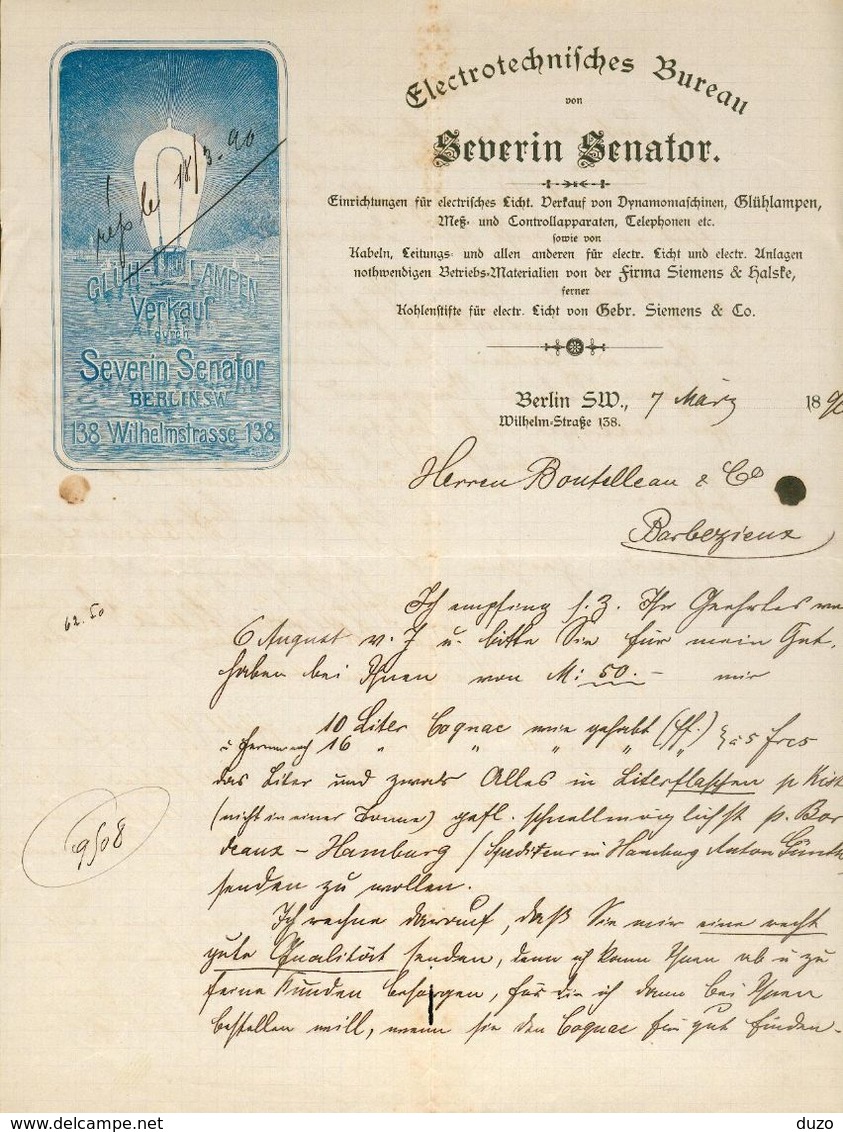 Electrotechnisches Bureau
von
Severin Senator.
Einrichtungen für electrisches Licht. Verkauf von Dynamomaschinen, Glühlampen,
Meß- und Controllapparaten, Telephonen etc.
sowie von
Kabeln, Leitungs- und allen anderen für electr. Licht und electr. Anlagen
nothwendigen Betriebs-Materialien von der Firma Siemens & Halske,
ferner
Kohlenstifte für electr. Licht von Gebr. Siemens & Co.
rép le 18/3.90
GLÜH-LAMPEN
Verkauf
durch
Severin Senator
BERLIN S.W.
138 Wilhelmstrasse 138
Berlin SW., 7 März 1890
Wilhelm-Straße 138.
Herren Boutelleau & Co
Barbezieux
62.50
Ich empfing s. Z. Ihr Geehrtes
6 August v. J u. bitte Sie für mein Gut-
haben bei Ihnen von M: 50.- mir
10 Liter Cognac wie gehabt (ff.)
16 " " " " à 5 frcs
das Liter und zwar Alles in Literflaschen p Kist
(nicht in einer Tonne) gefl. schnellmöglichst p. Bor
deaux - Hamburg (Spediteur in Hamburg Anton Günth
senden zu wollen.
9508
Ich rechne darauf, daß Sie mir eine recht
gute Qualität senden, denn ich kann Ihnen ab u zu
feine Kunden besorgen, für die ich dann bei Ihnen
bestellen will, wenn sie den Cognac für gut finden.
www.delcampe.net
duzo